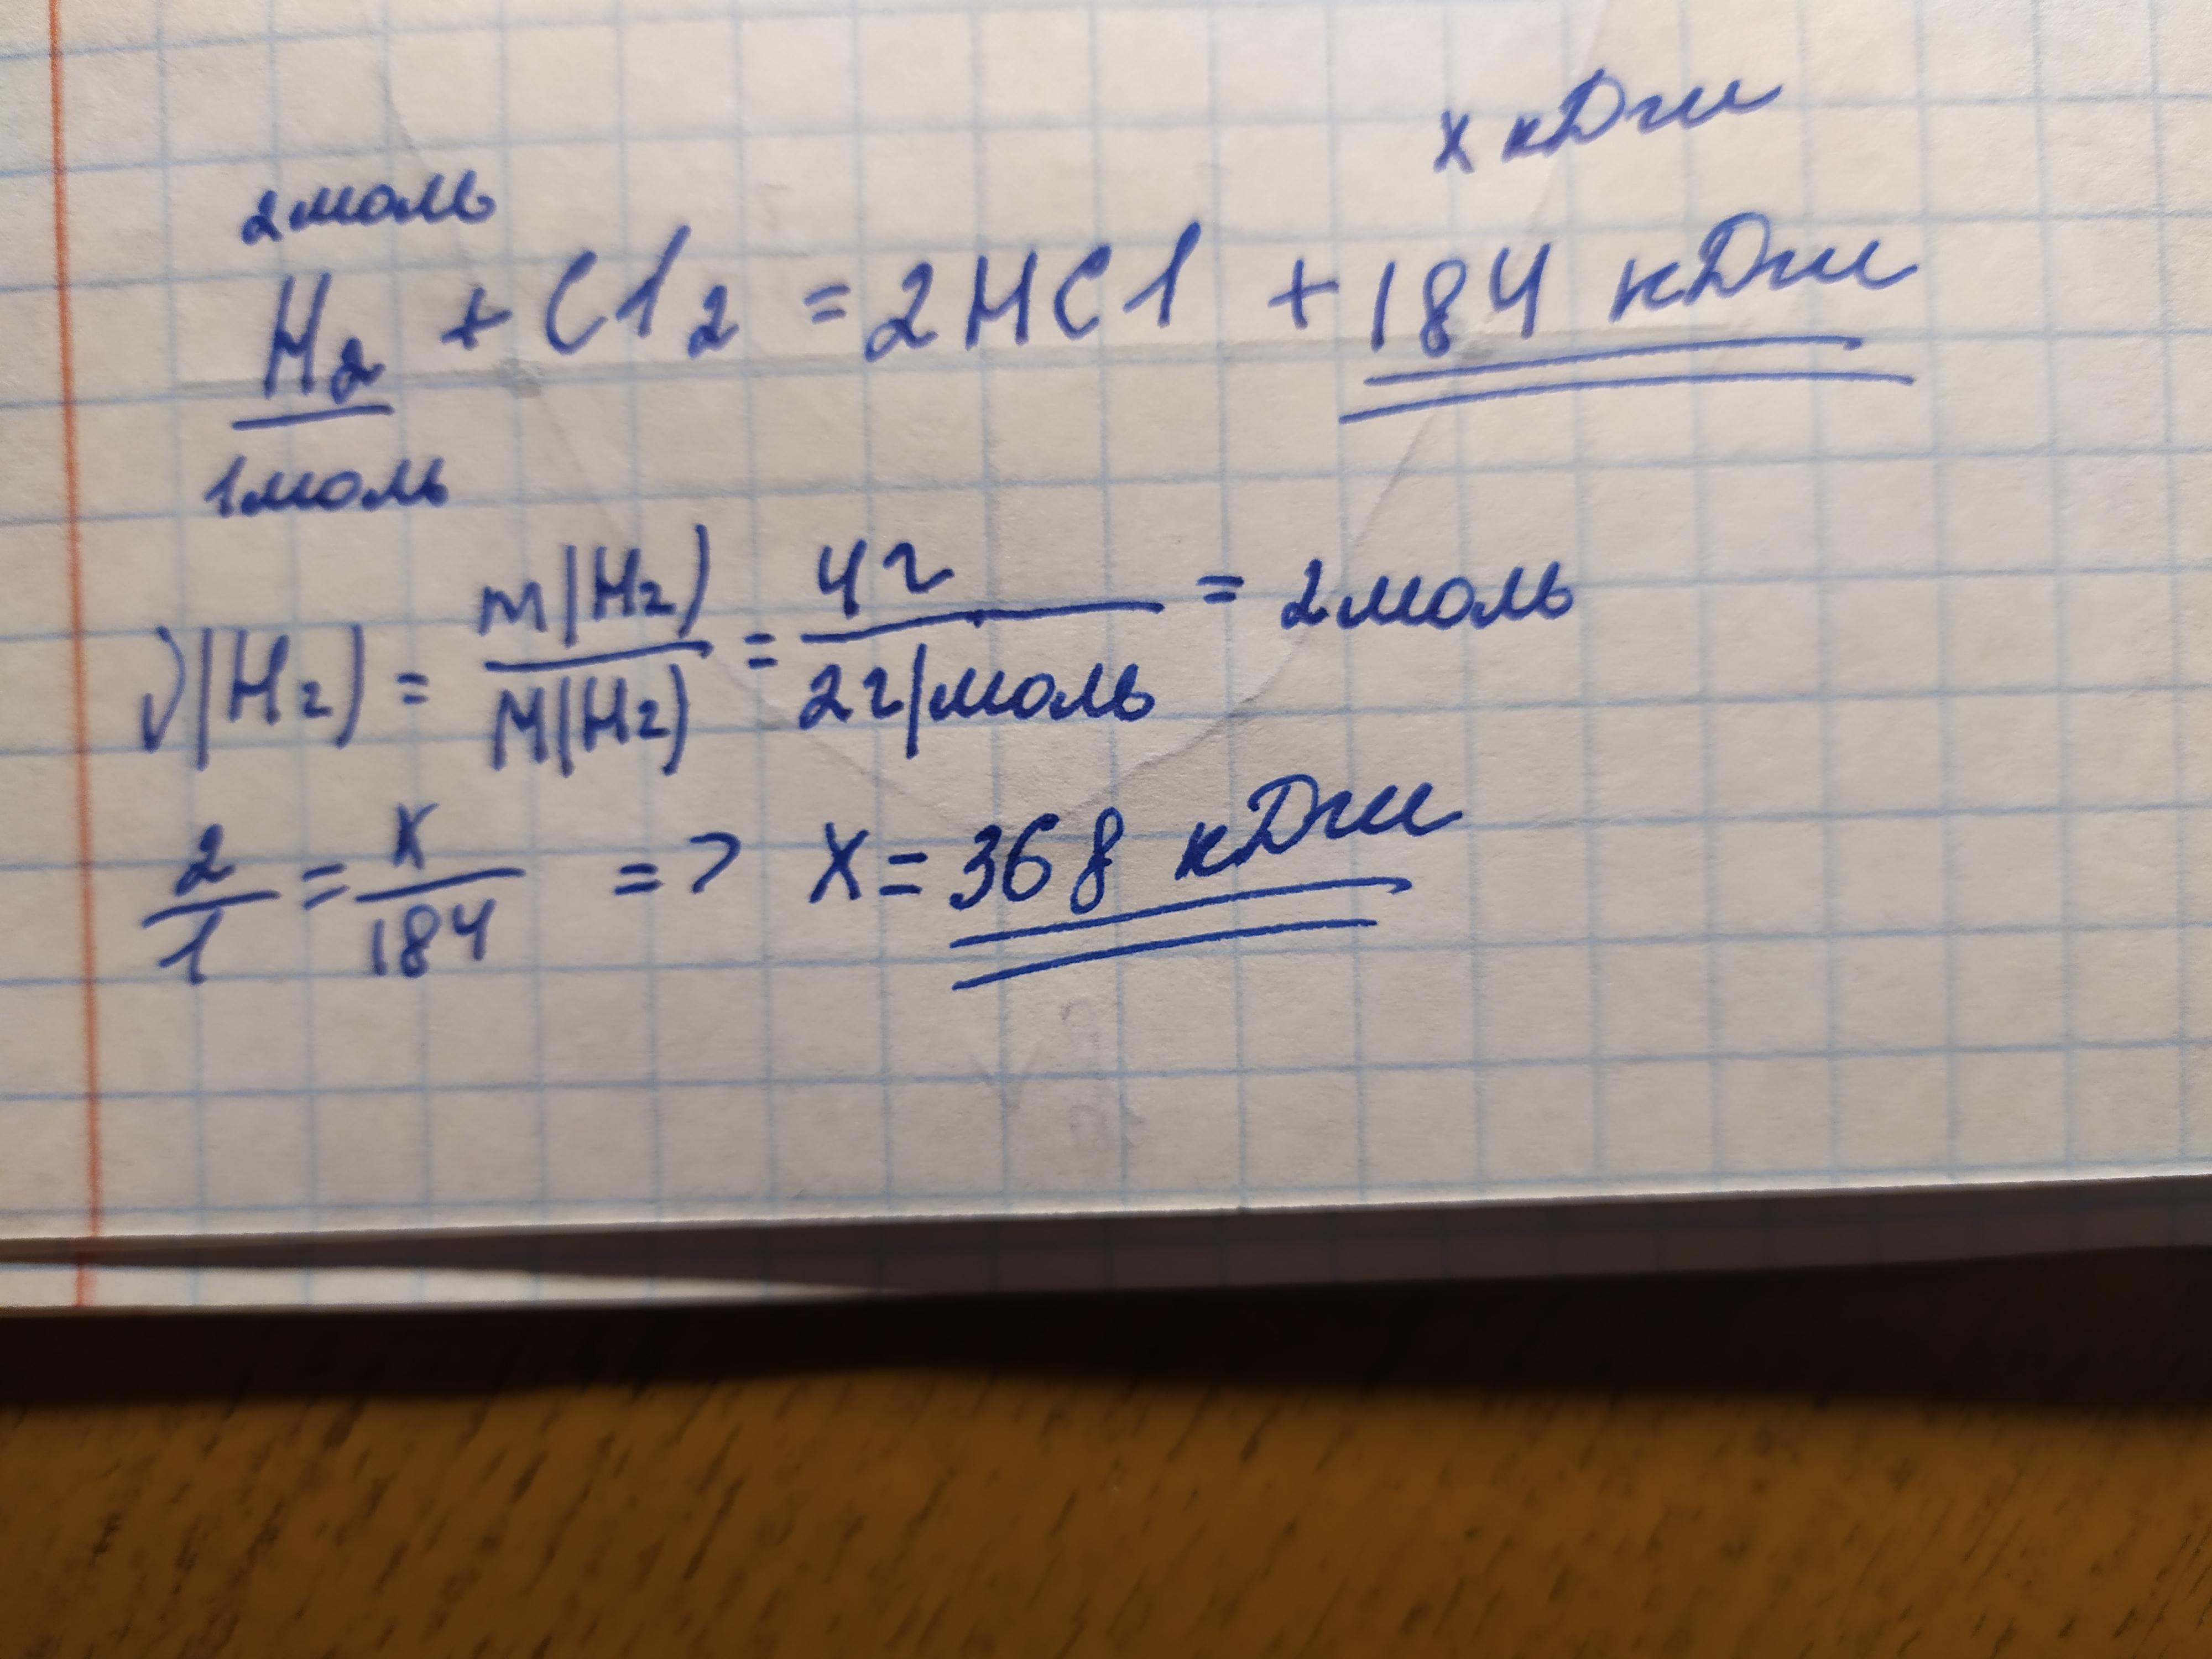 x кДж
2моль
H₂ + Cl₂ = 2HCl + 184 кДж
1моль
ν(H₂) = m(H₂)/M(H₂) = 4г/2г/моль = 2моль
2/1 = x/184 => x = 368 кДж